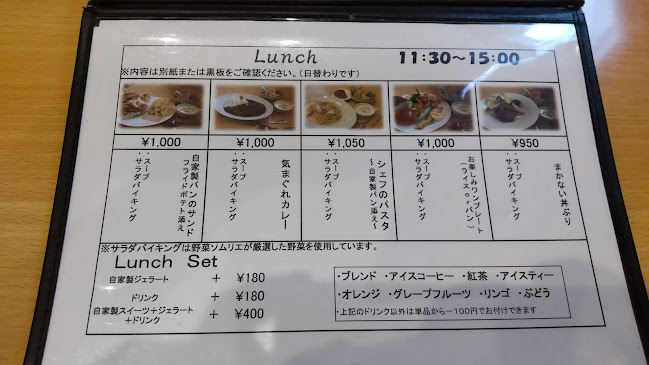 Lunch 11:30～15:00
※内容は別紙または黒板をご確認ください。(日替わりです)
¥1,000
¥1,000
¥1,050
¥1,000
¥950
自家製パンのサンド
フライドポテト添え
・スープ
・サラダバイキング
気まぐれカレー
・スープ
・サラダバイキング
シェフのパスタ
～自家製パン添え～
・スープ
・サラダバイキング
お楽しみワンプレート
(ライスorパン)
・スープ
・サラダバイキング
まかない丼ぶり
・スープ
・サラダバイキング
※サラダバイキングは野菜ソムリエが厳選した野菜を使用しています。
Lunch Set
自家製ジェラート + ¥180
ドリンク + ¥180
自家製スイーツ+ジェラート
+ドリンク + ¥400
・ブレンド ・アイスコーヒー ・紅茶 ・アイスティー
・オレンジ ・グレープフルーツ ・リンゴ ・ぶどう
・上記のドリンク以外は単品から－100円でお付けできます